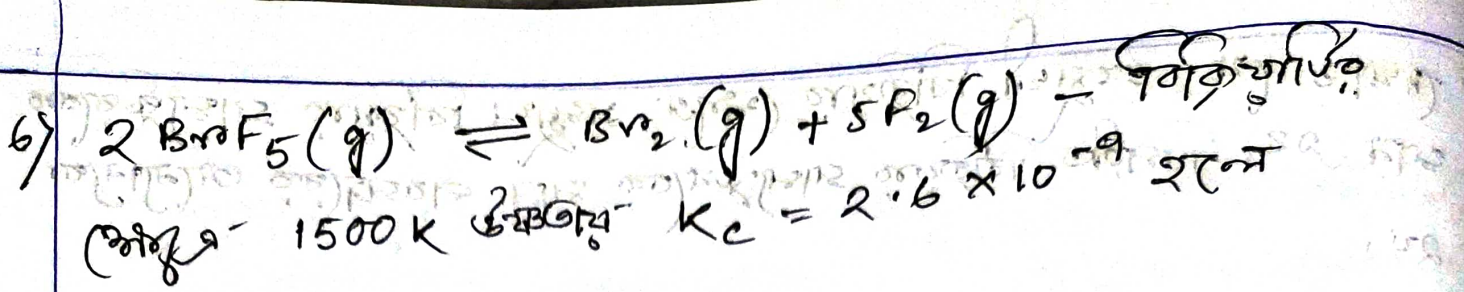 6) 2 BrF5(g) ⇌ Br2(g) + 5F2(g) – বিক্রিয়াটির
1500K উষ্ণতায় Kc = 2.6 × 10^-9 হলে